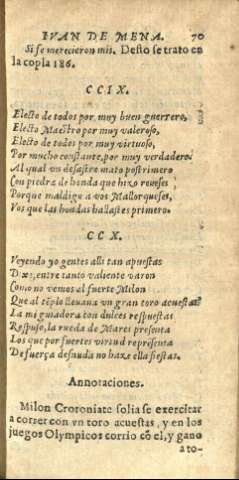 IVAN DE MENA. 70
Si se merecieron mis. Desto se trato en
la copla 186.
CCIX.
Electo de todos por muy buen guerrero,
Electo Maestro por muy valeroso,
Electo de todos por muy virtuoso,
Por mucho constante, por muy verdadero.
Al qual vn desastre mato postrimero
Con piedra de honda que hizo reueses
Porque maldigo a vos Mallorqueses,
Vos que las hondas hallastes primero.
CCX.
Veyendo yo gentes alli tan apuestas
Dixe, entre tanto valiente varon
Como no vemos al fuerte Milon
Que al tẽplo lleuaua vn gran toro acuestas
La mi guiadora con dulces respuestas
Respuso, la rueda de Mares presenta
Los que por fuerte virtud representa
De fuerça desnuda no haze ella fiestas.
Annotaciones.
Milon Crotoniate solia se exercitar
a correr con vn toro acuestas, y en los
juegos Olympicos corrio cõ el, y gano
a to-